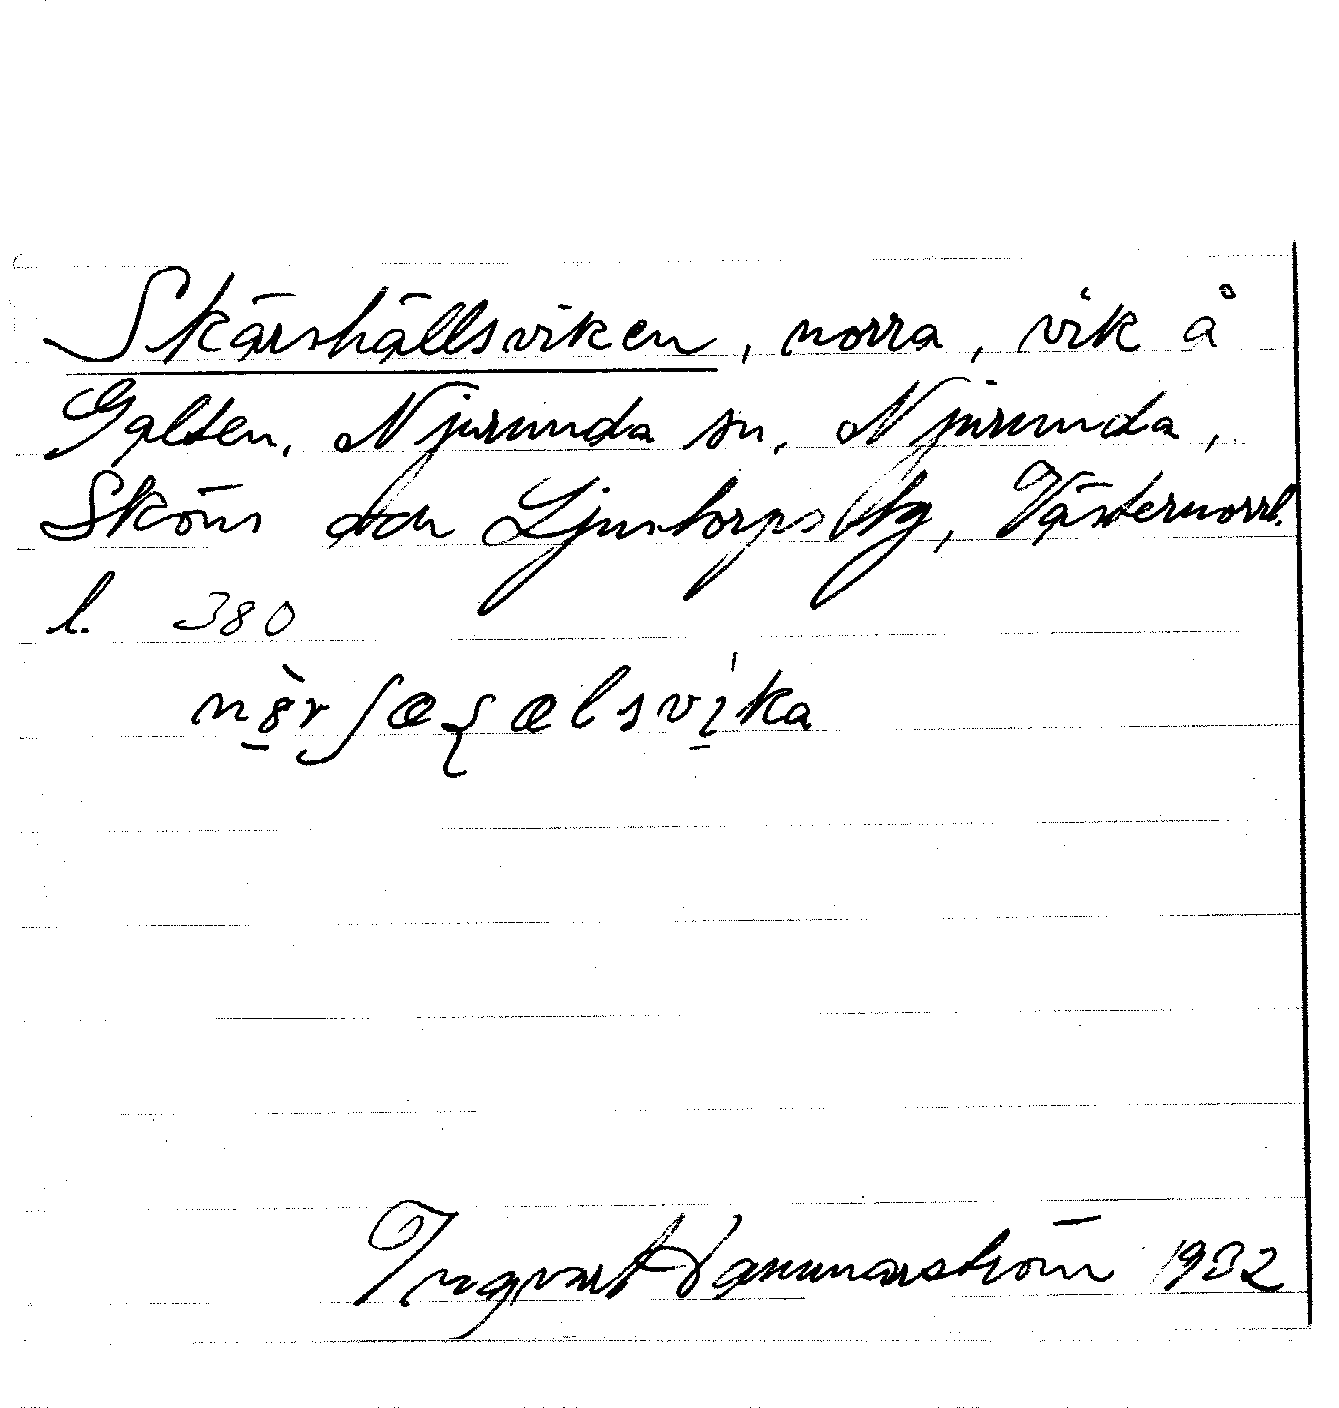 Skärshällsviken, norra, vik å
Galten, Njurunda sn, Njurunda,
Sköns och Ljustorps tg, Västernorrl.
l. 380
Ingvart Hammarström 1932